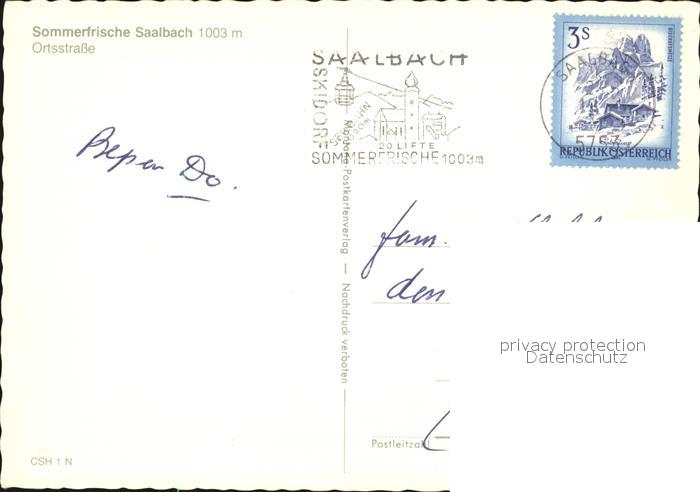 Sommerfrische Saalbach 1003 m
Ortsstraße
SAALBACH
SKIDORF
20 LIFTE
SOMMERFRISCHE 1003m
3S
SAALBACH
5753
REPUBLIK ÖSTERREICH
Bepen Do.
Postkartenverlag — Nachdruck verboten
fam.
den
privacy protection
Datenschutz
Postleitzahl
CSH 1 N